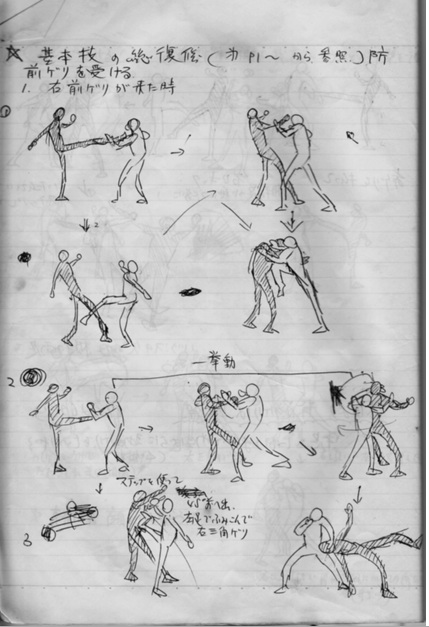 ☆ 基本技の総復習(P1〜から参照)防
前ゲリを受ける
1. 右前ゲリが来た時
①
2
一挙動
2
ステップを使って
右足でふみこんで
右三角ゲリ
3